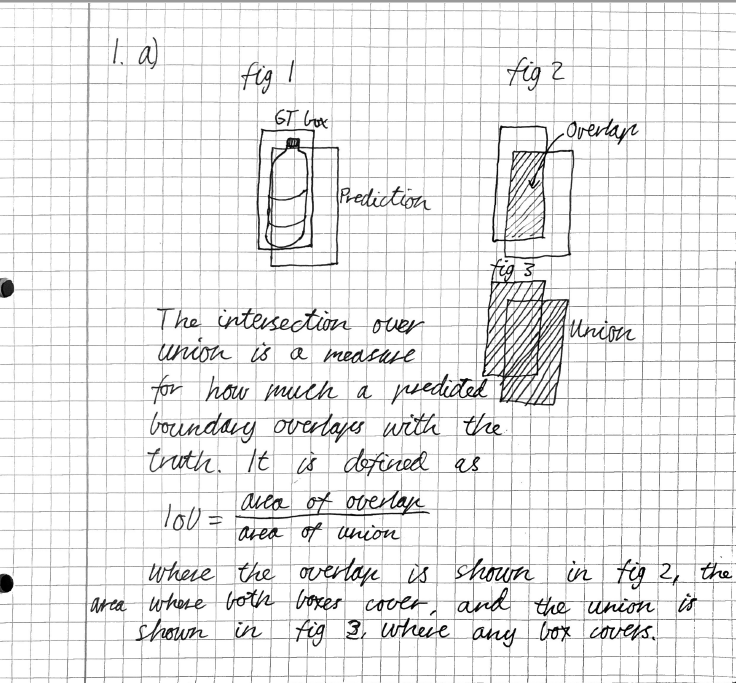 1. a)
fig 1
fig 2
GT box
Overlap
Prediction
fig 3
Union
The intersection over
union is a measure
for how much a predicted
boundary overlaps with the
truth. It is defined as
IoU = area of overlap
area of union
Where the overlap is shown in fig 2, the
area where both boxes cover, and the union is
shown in fig 3, where any box covers.